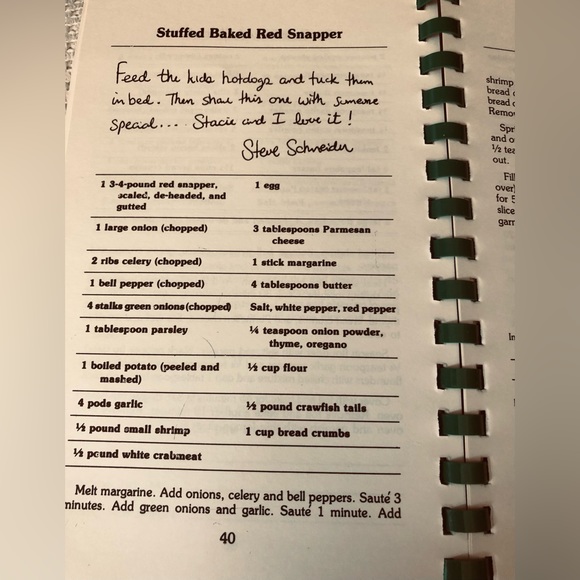 Stuffed Baked Red Snapper
Feed the kids hotdogs and tuck them
in bed. Then share this one with someone
special... Stacie and I love it!
Steve Schneider
1 3-4-pound red snapper,
scaled, de-headed, and
gutted
1 egg
1 large onion (chopped)
3 tablespoons Parmesan
cheese
2 ribs celery (chopped)
1 stick margarine
1 bell pepper (chopped)
4 tablespoons butter
4 stalks green onions (chopped)
Salt, white pepper, red pepper
1 tablespoon parsley
¼ teaspoon onion powder,
thyme, oregano
1 boiled potato (peeled and
mashed)
½ cup flour
4 pods garlic
½ pound crawfish tails
½ pound small shrimp
1 cup bread crumbs
½ pound white crabmeat
Melt margarine. Add onions, celery and bell peppers. Sauté 3
minutes. Add green onions and garlic. Sauté 1 minute. Add
40
shrimp
bread
bread
Remo
Spr
and o
½ tea
out.
Fil
over
for 5
slice
garn